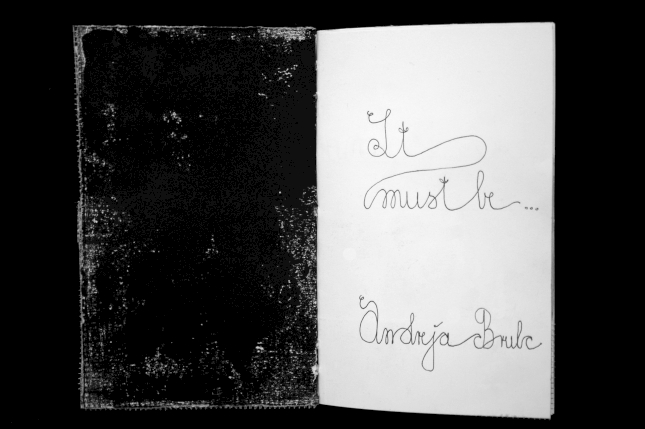 It
must be...
Andreja Brulc